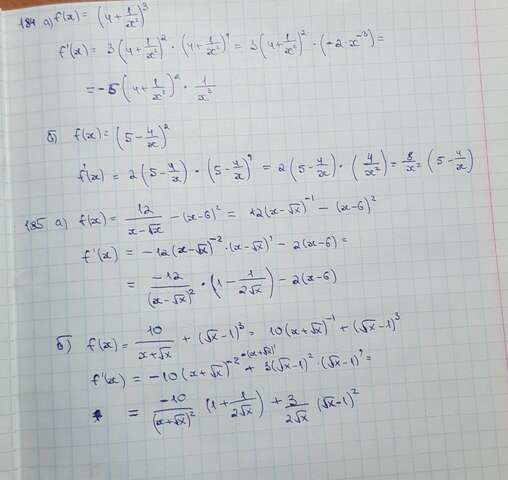 184 а) f(x) = (4 + 1/x²)³
f'(x) = 3(4 + 1/x²)² · (4 + 1/x²)' = 3(4 + 1/x²)² · (-2·x⁻³) =
= -6(4 + 1/x²)² · 1/x³
б) f(x) = (5 - 4/x)²
f'(x) = 2(5 - 4/x) · (5 - 4/x)' = 2(5 - 4/x) · (4/x²) = 8/x² (5 - 4/x)
185 а) f(x) = 12/(x-√x) - (x-6)² = 12(x-√x)⁻¹ - (x-6)²
f'(x) = -12(x-√x)⁻² · (x-√x)' - 2(x-6) =
= -12/(x-√x)² · (1 - 1/(2√x)) - 2(x-6)
б) f(x) = 10/(x+√x) + (√x-1)³ = 10(x+√x)⁻¹ + (√x-1)³
f'(x) = -10(x+√x)⁻² · (x+√x)' + 3(√x-1)² · (√x-1)' =
= -10/(x+√x)² (1 + 1/(2√x)) + 3/(2√x) (√x-1)²